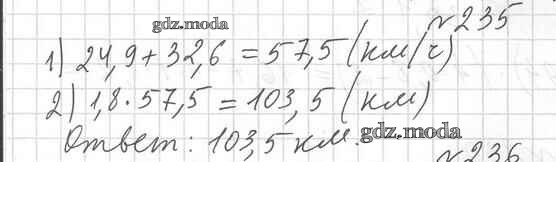 gdz.moda
№235
1) 24,9 + 32,6 = 57,5 (км/ч)
2) 1,8 · 57,5 = 103,5 (км)
Ответ: 103,5 км.
gdz.moda
№236